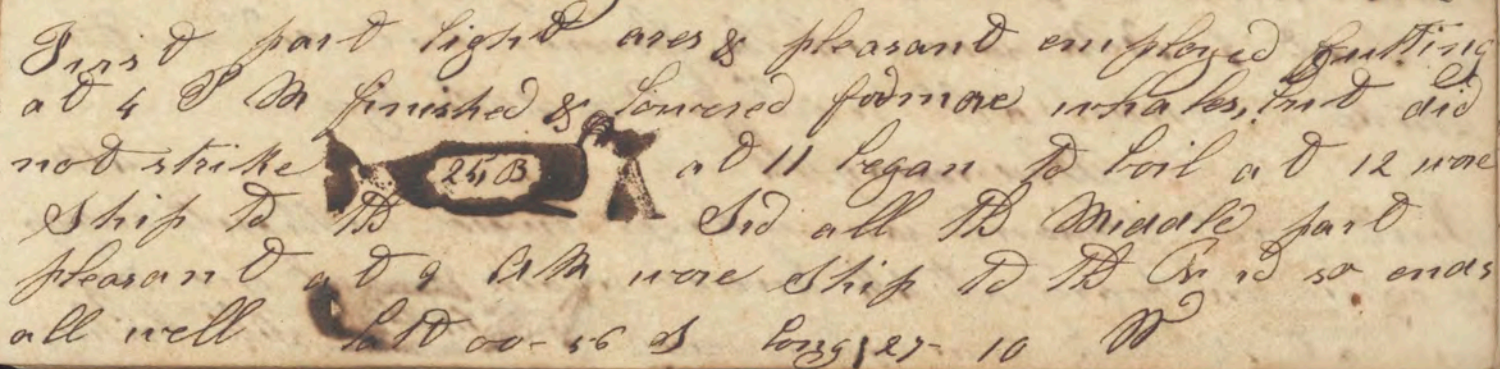 First part light ares & pleasant employed Cutting
at 4 P M finished & lowered for more whales, but did
not strike 25 B at 11 began to boil at 12 wore
Ship to th Srd all th Middle part
pleasant at 9 AM wore Ship to th rd so ends
all well Latt 00-56 S Long 127-10 W